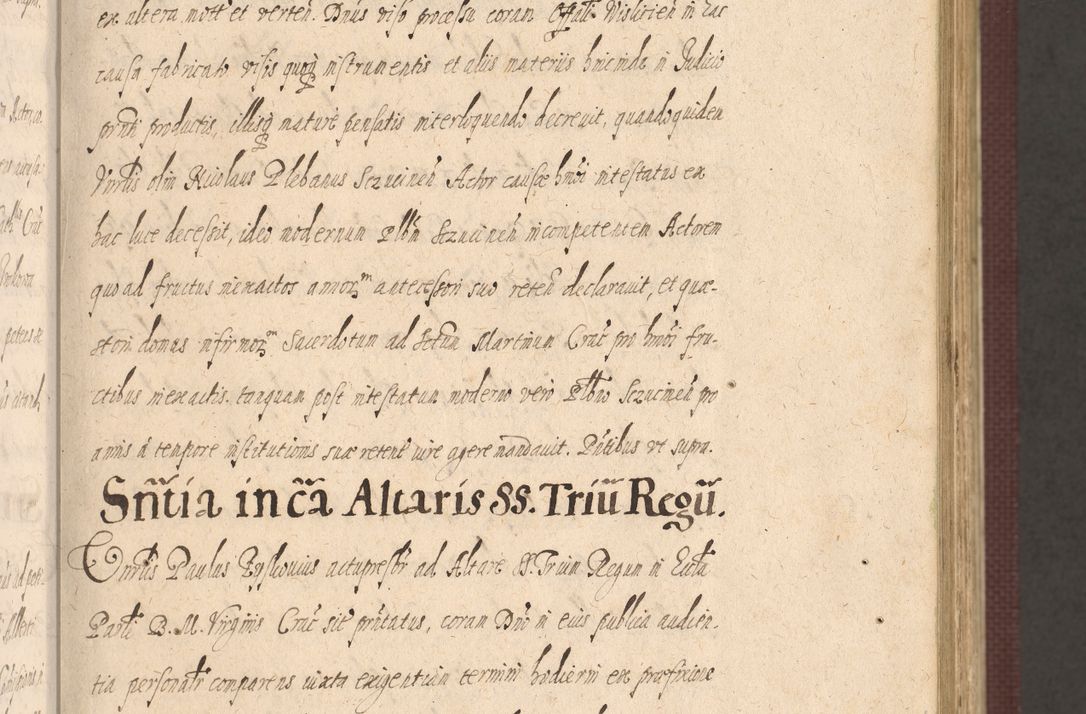 ex altera mott et verten. Dnus viso processu coram Offali Wislicien in hac
causa fabricato visis quoq instrumentis et aliis materiis hincinde in Judicio
prnti productis, illisq mature pensatis interloquendo decrevit, quandoquiden
Vnrblis olim Nicolaus Plebanus Sczucinen Actor causæ hmoi intestatus ex
hac luce decessit, ideo modernum Plbn Sczucinen incompetentem Actorem
quo ad fructus inexactos annorm antecessori suo reten declaravit, et quæ-
stori domus infirmorm Sacerdotum ad Sctum Martinum Crac pro hmoi fru-
ctibus inexactis tanquam post intestatum moderno vero Plbno Sczucinen pro
annis a tempore institutionis suæ retent iure agere mandavit. Pntibus vt supra.
Sñtia in cã Altaris SS. Triũ Regũ.
Vnrblis Paulus actupresbr ad Altare SS. Trium Regum in Eccla
Parli B. M. Virginis Crac sit prntatus, coram Dno in eius publica audien-
tia personalr comparens iuxta exigentiam termini hodierni ex præfixione